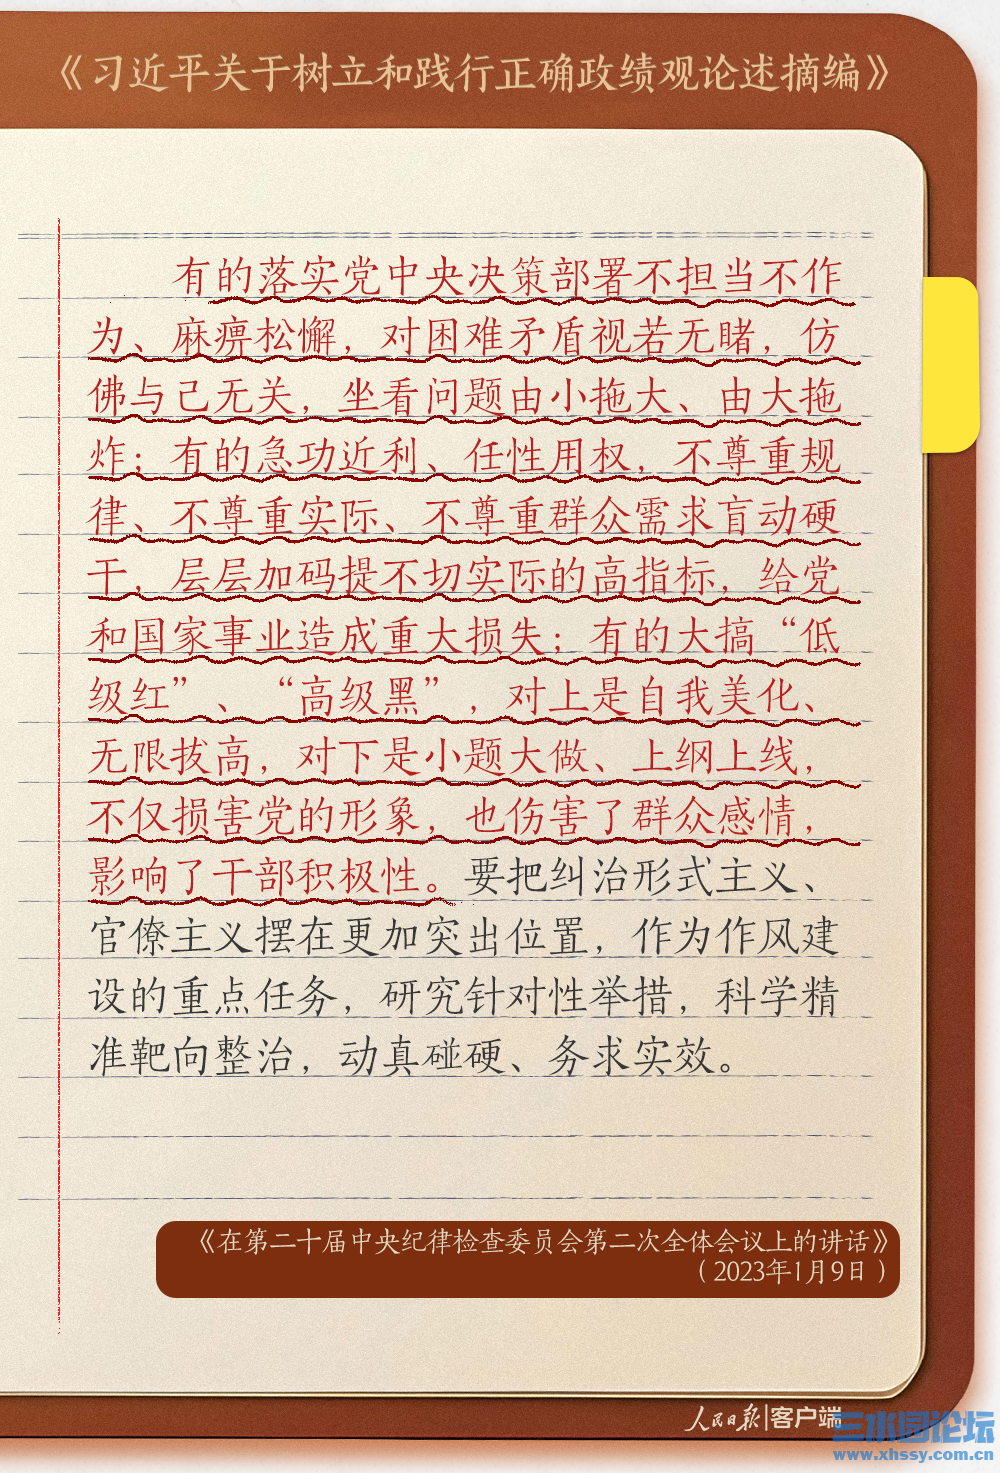 《习近平关于树立和践行正确政绩观论述摘编》
有的落实党中央决策部署不担当不作
为、麻痹松懈，对困难矛盾视若无睹，仿
佛与己无关，坐看问题由小拖大、由大拖
炸；有的急功近利、任性用权，不尊重规
律、不尊重实际、不尊重群众需求盲动硬
干，层层加码提不切实际的高指标，给党
和国家事业造成重大损失；有的大搞“低
级红”、“高级黑”，对上是自我美化、
无限拔高，对下是小题大做、上纲上线，
不仅损害党的形象，也伤害了群众感情，
影响了干部积极性。要把纠治形式主义、
官僚主义摆在更加突出位置，作为作风建
设的重点任务，研究针对性举措，科学精
准靶向整治，动真碰硬、务求实效。
《在第二十届中央纪律检查委员会第二次全体会议上的讲话》
（2023年1月9日）
人民日报|客户端
三水园论坛
www.xhssy.com.cn